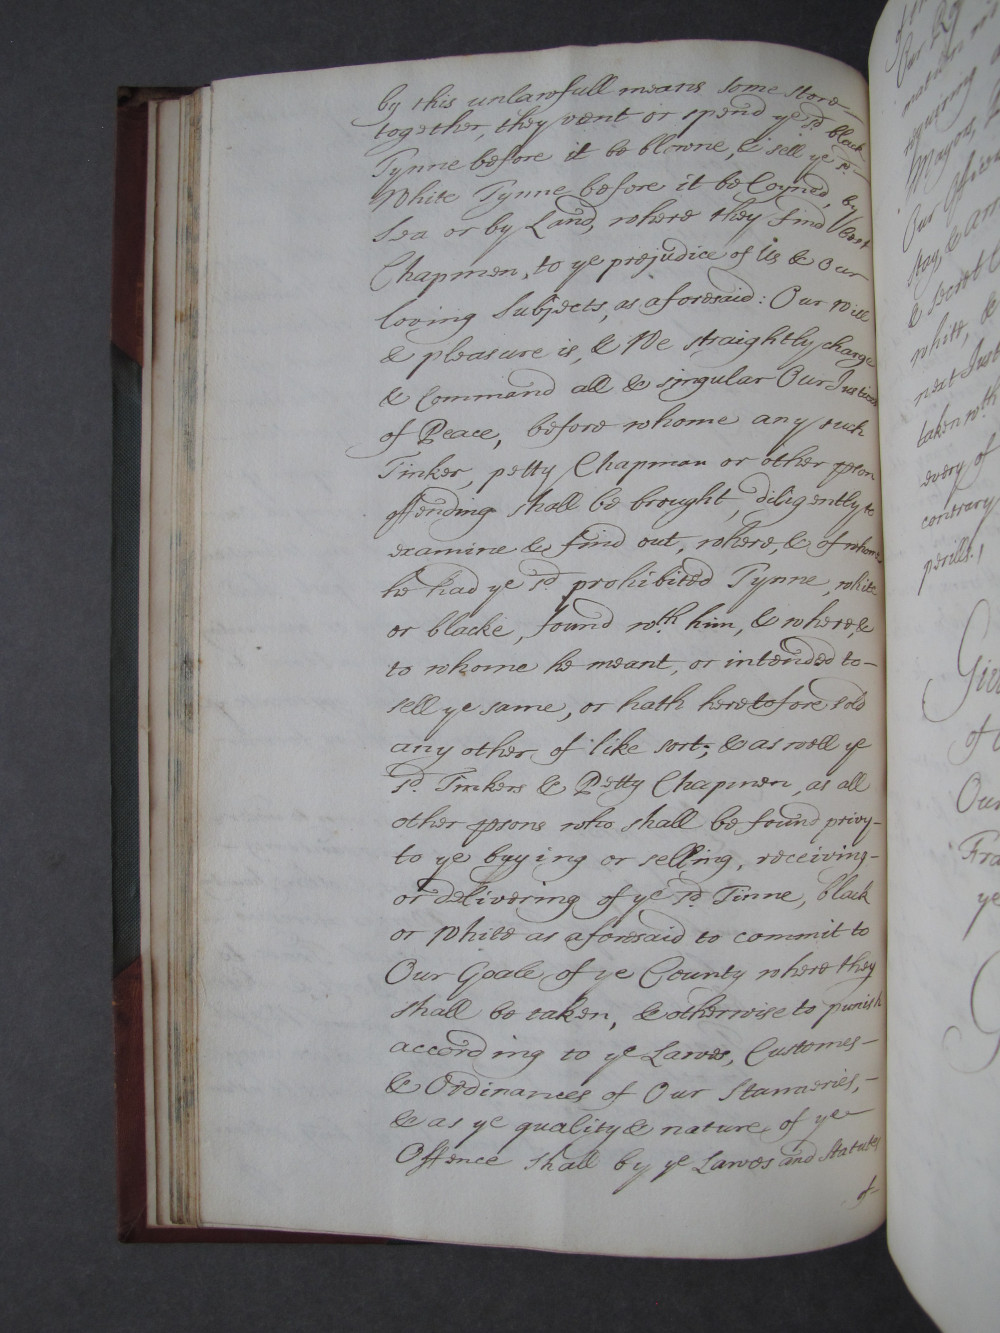 by this unlawfull means some store
together, they vent or spend ye sd. black
Tynne before it be blowne, & sell ye sd.
White Tynne before it be Coyned, by
Sea or by Land, where they find best
Chapmen, to ye prejudice of Us & Our
loving Subjects, as aforesaid: Our Will
& pleasure is, & We straightly charge
& Command all & singular Our Justices
of Peace, before whome any such
Tinker, petty Chapman or other pson
offending shall be brought, diligently to
examine & find out, where, & of whome
he had ye sd. prohibited Tynne, white
or blacke, found wth. him, & where, &
to whome he meant, or intended to-
sell ye same, or hath heretofore sold
any other of like sort; & as well ye
sd. Tinkers & Petty Chapmen, as all
other psons who shall be found privy-
to ye buying or selling, receiving-
or delivering of ye sd. Tinne, black
or White as aforesaid to commit to
Our Goale of ye County where they
shall be taken, & otherwise to punish
according to ye Lawes, Customes-
& Ordinances of Our Stanneries,-
& as ye quality & nature of ye
Offence shall by ye Lawes and Statutes
of-
Our
requiring
Mayors,
Our Officers
stay, &
& secret
white, &
next Just
taken wth.
every of
contrary
perills.
Give
of
Our
Fra
ye